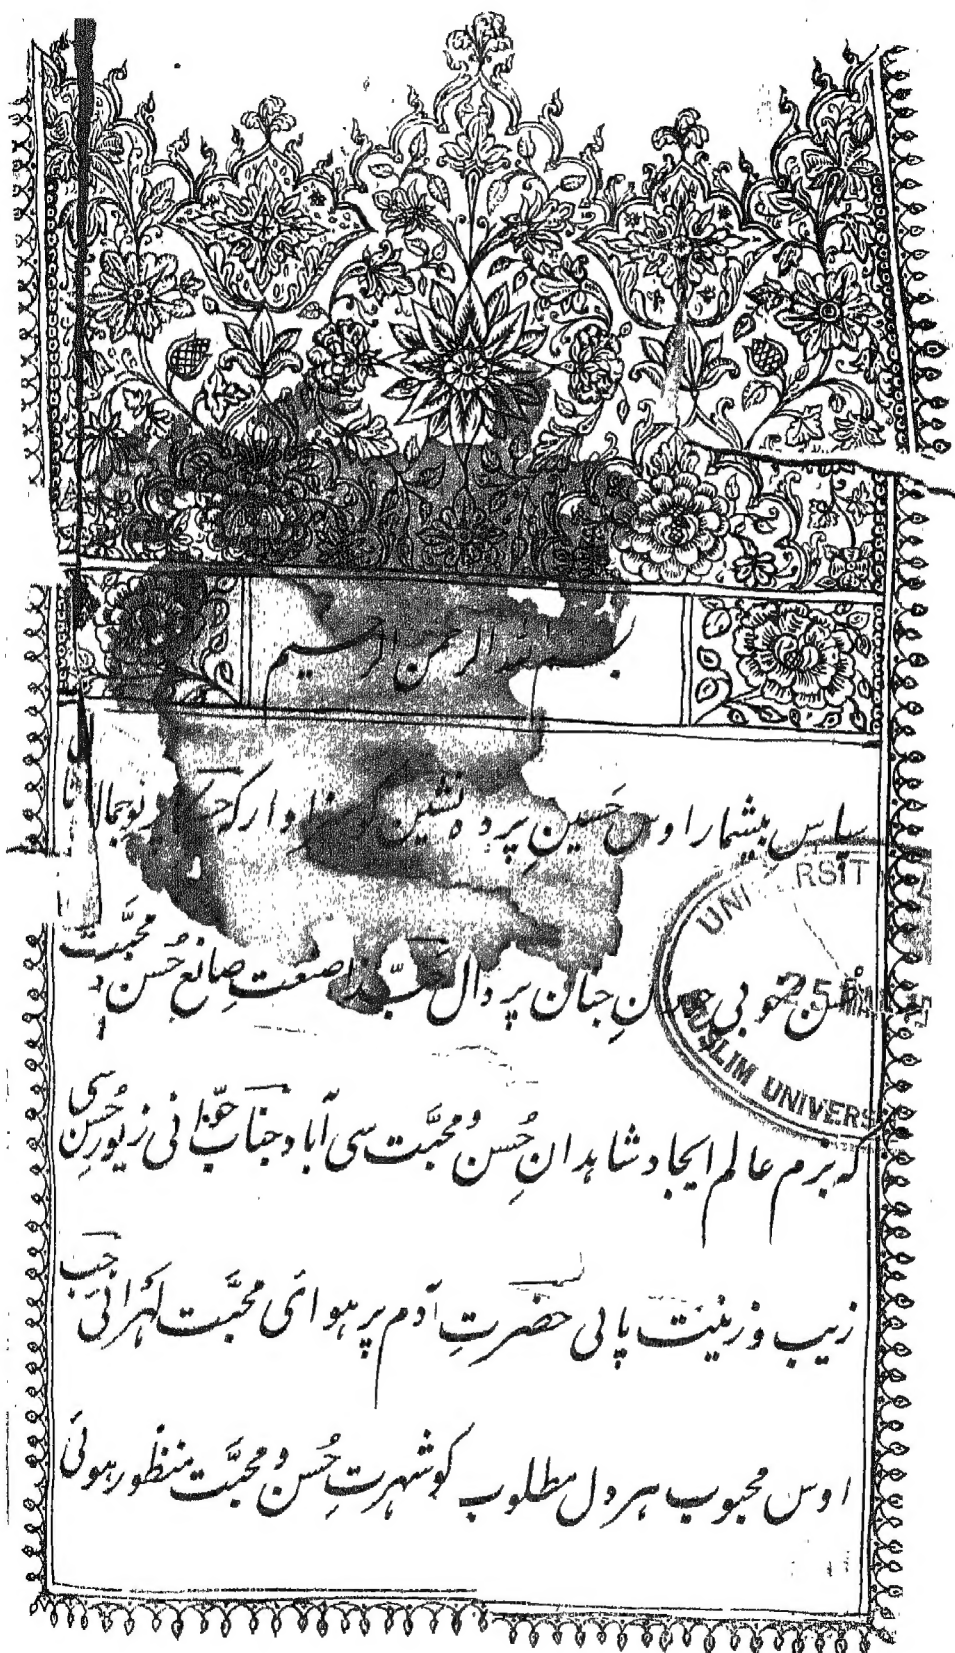 بسم اللہ الرحمن الرحیم
سپاس بیشمار اوس حَسینِ پردہ نشین کو سزاوار کہ نوجمال
خوبی جنان پر دال حبّذا صنعتِ صانعِ حُسن و محبَّت
کہ بزم عالمِ ایجاد شاہدانِ حُسن و محبَّت سی آباد جناب حوّا نی زیورِ حُسن سی
زیب و زینت پائی حضرتِ آدم پر ہوائی محبَّت لہرائی جب
اوس محبوب ہر دل مطلوب کو شہرتِ حُسن و محبَّت منظور ہوئی
UNIVERSIT
25
MUSLIM UNIVERS